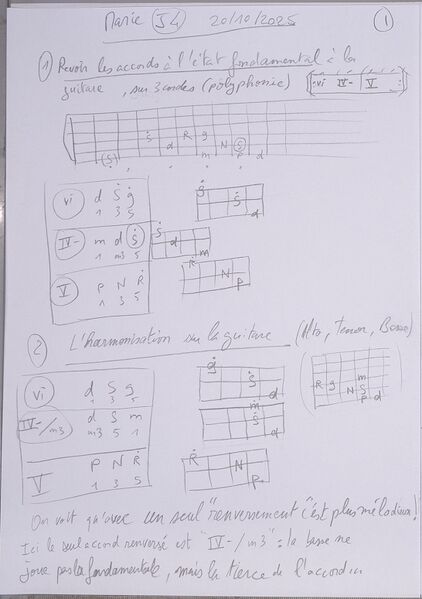 Marie J4 20/10/2025 1
1) Revoir les accords à l'état fondamental à la
guitare, sur 3 cordes (polyphonie) vi IV- V
S R g
d N S
(S) m P d
vi d S g
1 3 5
S S d
IV- m d S
1 m3 5
S d m
V P N R
1 3 5
R N P
2 L'harmonisation sur la guitare (Alto, Tenor, Basse)
vi d S g
1 3 5
g S d
IV-/m3 d S m
m3 5 1
m S d
V P N R
1 3 5
R N P
R g N m S P d
On voit qu'avec un seul "renversement" c'est plus mélodieux!
Ici le seul accord renversé est "IV-/m3" : la basse ne
joue pas la fondamentale, mais la tierce de l'accord